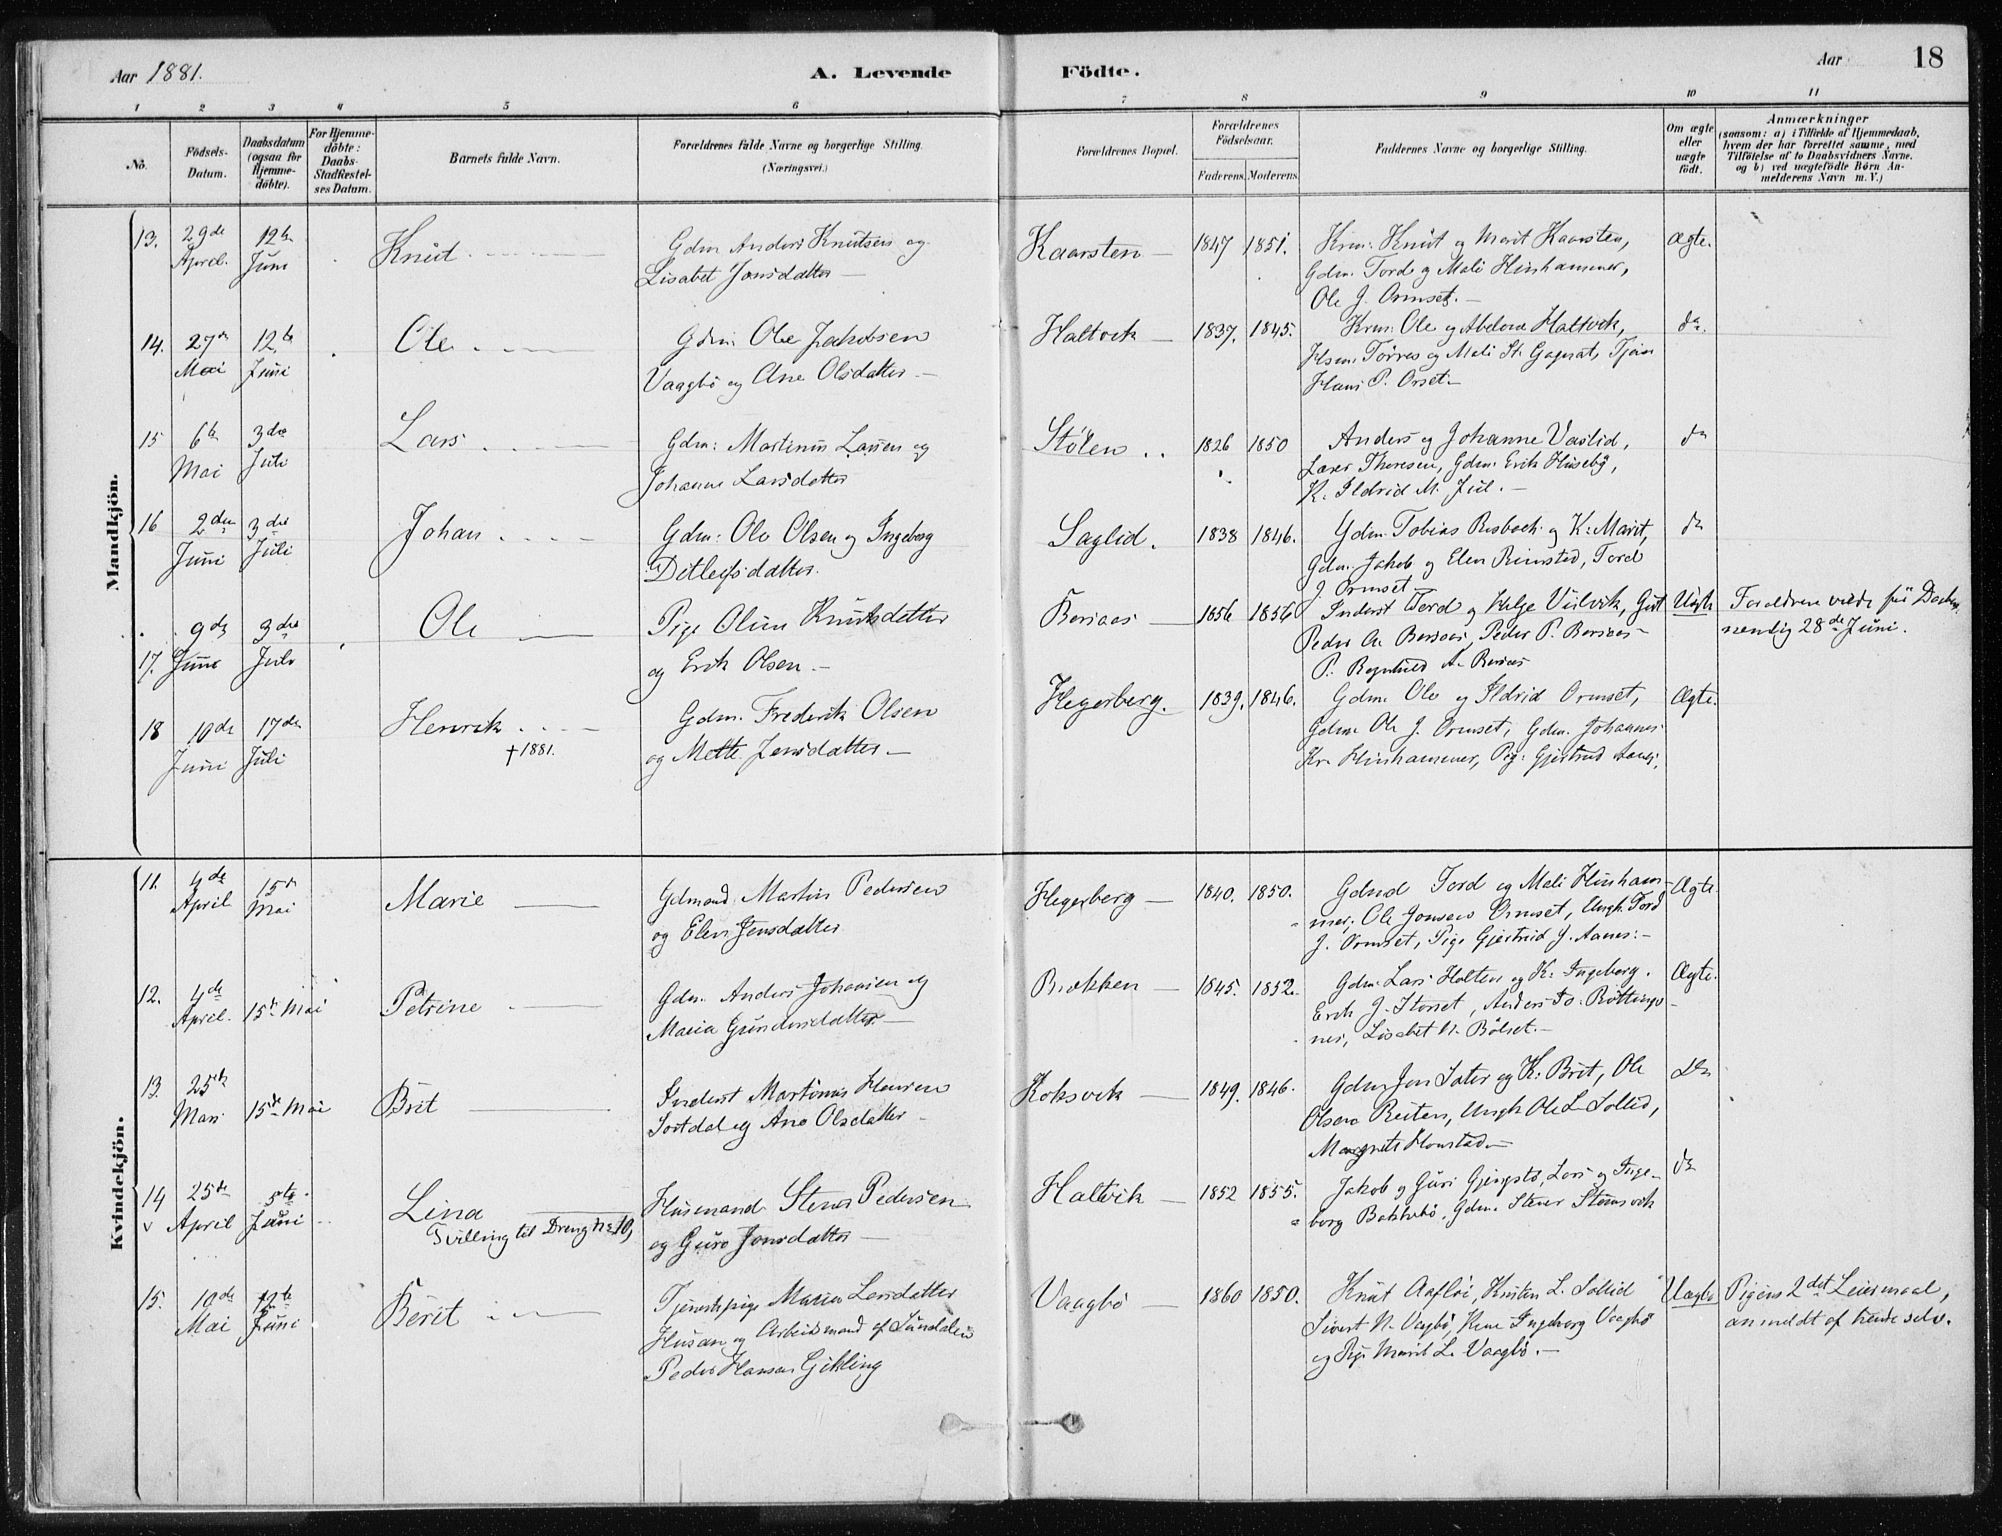 Aar 1881.
A. Levende
Födte.
Aar
18
1 2 3 4 5 6 7 8 9 10 11
No.
Födsels-
Datum.
Daabsdatum
(ogsaa for
Hjemme-
döbte).
For Hjemme-
döbte:
Daabs-
Stadfæstel-
ses Datum.
Barnets fulde Navn.
Forældrenes fulde Navne og borgerlige Stilling.
(Næringsvei.)
Forældrenes Bopæl.
Forældrenes
Födselsaar.
Faderens. Moderens.
Faddernes Navne og borgerlige Stilling.
Om ægte
eller
uægte
födt.
Anmærkninger
(saasom: a) i Tilfælde af Hjemmedaab,
hvem der har forrettet samme, med
Tilföielse af to Daabsvidners Navne.
og b) ved uægtefödte Börn An-
melderens Navn m. V.)
Mandkjön.
13. 29de April. 12te Juni Knut
Gdm Anders Knutsen og
Lisabet Jonsdatter
Kaarsten 1847 1851.
Krm: Knut og Marit Kaarsten,
Gdm. Tord og Mali Hinhammer,
Ole J. Ormset.
Ægte.
14. 27de Mai 12te Juni Ole
Gdm: Ole Jakobsen
Vaagbö og Ane Olsdatter
Haltvik 1837. 1845.
Krm: Ole og Abelone Haltvik,
Hsm. Torres og Mali St. Gagnat, Tjen
Hans P. Orset
do.
15 6te Mai 3die Juli Lars
Gdm: Martinus Larsen og
Johanne Larsdatter
Stölen 1826 1850
Anders og Johanne Vaslid,
Lærer Thoresen, Gdm. Erik Husebÿ,
K. Ildrid M. Jul.
do
16 2den Juni 3die Juli Johan
Gdm: Ole Olsen og Ingeborg
Ditlefsdatter.
Saglid. 1838 1846.
Gdm. Tobias Risbak og K: Marit,
Gdm. Jakob og Elen Rimsted, Tord
J. Ormset
do
17. 9de Juni 3die Juli Ole
Pige Oline Knutsdatter
og Erik Olsen.
Bersaas 1856 1856
Inderst Tord og Helje Vulvik, Gut
Peder A. Bersaas, Peder P. Bersaas
P. Ragnhild A. Bersaas
Uægte
Forældrene viede paa
28de Juni.
18 10de Juni 17de Juli Henrik
† 1881.
Gdm. Frederik Olsen
og Mette Jensdatter
Hegerberg. 1839. 1846.
Gdm. Ole og Ildrid Ormset,
Gdm. Ole J. Ormset, Gdm. Johannes
Kr. Hinhammer, Pig: Gjertrud Aanes.
Ægte.
Kvindekjön.
11. 4de April 15de Mai Marie
Gdmand Martin Pedersen
og Elen Jensdatter
Hegerberg 1840. 1850.
Gdmd Tord og Mali Hinham-
mer, Ole Jonsen Ormset, Ungk. Tord
J. Ormset, Pige Gjertrud J. Aanes:
Ægte
12. 4de April. 15de Mai Petrine
Gdm. Anders Johansen og
Maria Gundersdatter
Brækken 1845. 1852.
Gdm: Lars Holten og K: Ingeborg.
Erik J. Storset, Anders To. Böttings-
nes, Lisabet N. Bölset.
Ægte.
13. 25de Mars 15de Mai Brit
Inderst Martinus Hansen
Sortdal og Ane Olsdatter
Koksvik 1849. 1846.
Gdm Jon Sater og K: Brit, Ole
Olsen Reiten, Ungk Ole L. Sollid,
Margrete Honstad
do
14 25de April 5te Juni Lina
Tvilling til Dreng No 10,
Husmand Stener Pedersen
og Guro Jonsdatter
Haltvik 1852 1855.
Jakob og Guri Gjengstö, Lars og Inge-
borg Bakkebö, Gdm. Stener Stomsvik
do
15. 10de Mai 12te Juni Berit
Tjenestepige Maria Larsdatter
Husan og Arbeidsmand af Sundalen
Peder Hansen Gikling
Vaagbö 1860 1850.
Knut Aaflöi, Kristen L. Sollid
Sivert N. Vaagbö, Kone Ingeborg Vaagbö
og Pige Marit L. Vaagbö.
Uægte
Pigens 2det Leiermaal,
anmeldt af hende selv.